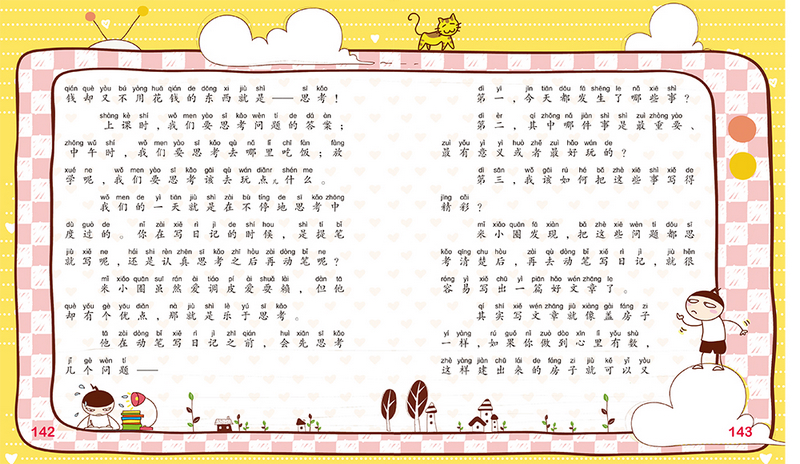 qián què yòu bú yòng huā qián de dōng xi jiù shì sī kǎo
钱却又不用花钱的东西就是——思考！
shàng kè shí wǒ men yào sī kǎo wèn tí de dá àn
上课时，我们要思考问题的答案；
zhōng wǔ shí wǒ men yào sī kǎo qù nǎ lǐ chī fàn fàng
中午时，我们要思考去哪里吃饭；放
xué ne wǒ men yào sī kǎo gāi qù wán diǎnr shén me
学呢，我们要思考该去玩点儿什么。
wǒ men de yì tiān jiù shì zài bù tíng de sī kǎo zhōng
我们的一天就是在不停地思考中
dù guò de nǐ zài xiě rì jì de shí hou shì tí bǐ
度过的。你在写日记的时候，是提笔
jiù xiě ne hái shì rèn zhēn sī kǎo zhī hòu zài dòng bǐ ne
就写呢，还是认真思考之后再动笔呢？
mǐ xiǎo quān suī rán ài tiáo pí ài shuǎ lài dàn tā
米小圈虽然爱调皮爱耍赖，但他
què yǒu gè yōu diǎn nà jiù shì lè yú sī kǎo
却有个优点，那就是乐于思考。
tā zài dòng bǐ xiě rì jì zhī qián huì xiān sī kǎo
他在动笔写日记之前，会先思考
jǐ gè wèn tí
几个问题——
142
dì yī jīn tiān dōu fā shēng le nǎ xiē shì
第一，今天都发生了哪些事？
dì èr qí zhōng nǎ jiàn shì shì zuì zhòng yào
第二，其中哪件事是最重要、
zuì yǒu yì yì huò zhě zuì hǎo wán de
最有意义或者最好玩的？
dì sān wǒ gāi rú hé bǎ zhè xiē shì xiě de
第三，我该如何把这些事写得
jīng cǎi
精彩？
mǐ xiǎo quān fā xiàn bǎ zhè xiē wèn tí dōu sī
米小圈发现，把这些问题都思
kǎo qīng chu hòu zài qù dòng bǐ xiě rì jì jiù hěn
考清楚后，再去动笔写日记，就很
róng yì xiě chū yì piān hǎo wén zhāng le
容易写出一篇好文章了。
qí shí xiě wén zhāng jiù xiàng gài fáng zi
其实写文章就像盖房子
yí yàng rú guǒ nǐ zuò dào xīn lǐ yǒu shù
一样，如果你做到心里有数，
zhè yàng jiàn chū lái de fáng zi jiù kě yǐ yòu
这样建出来的房子就可以又
143